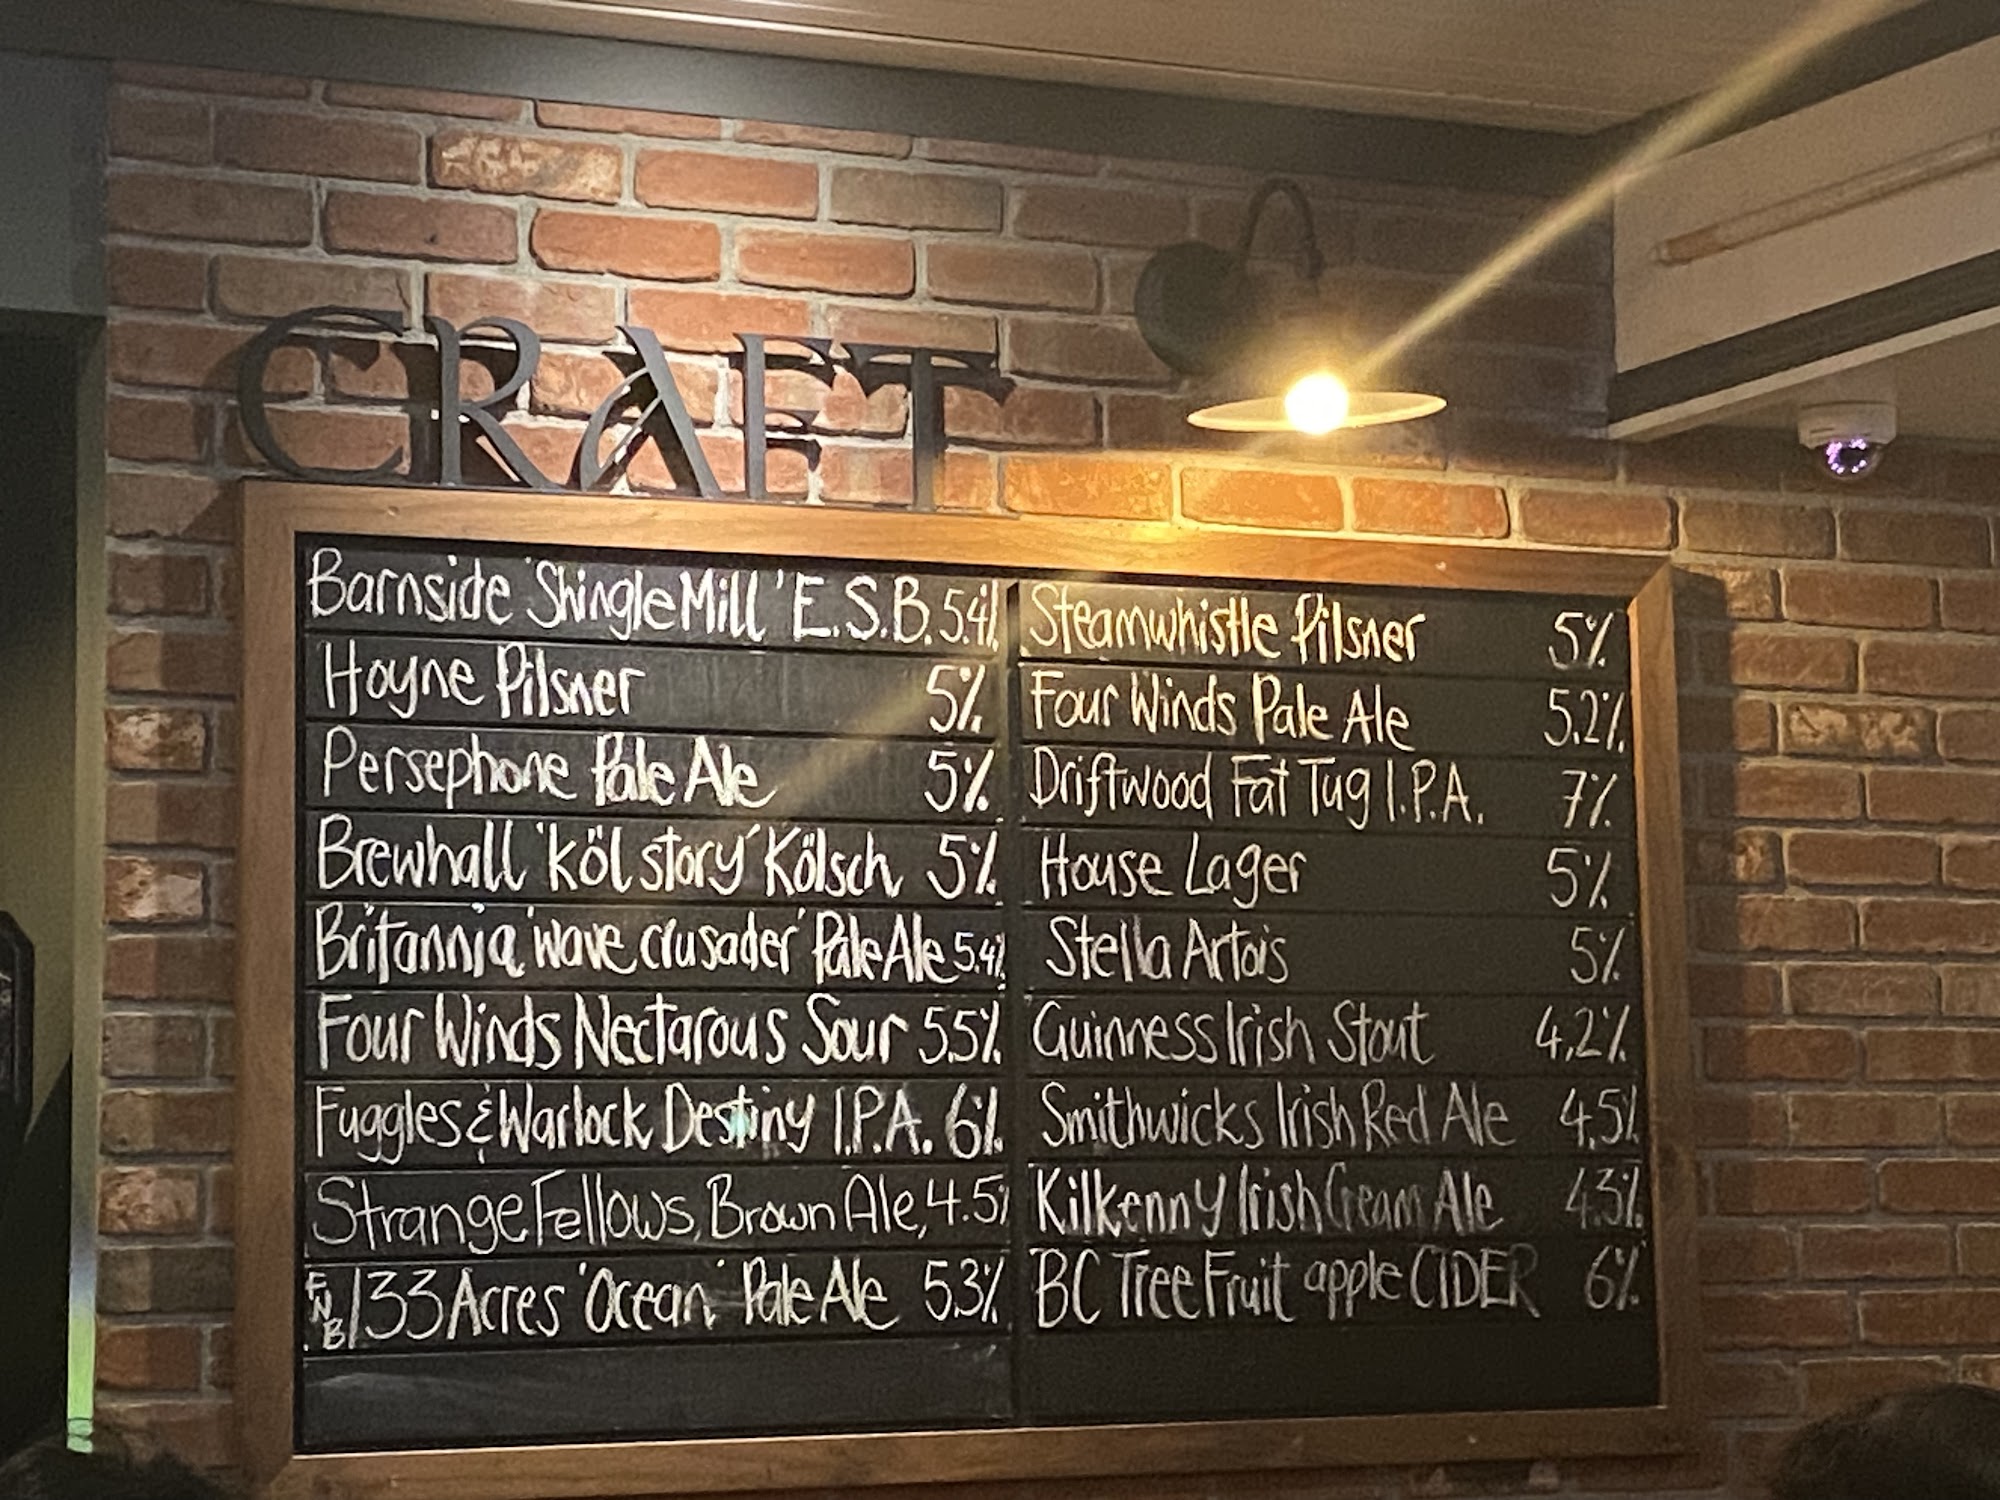 CRAFT
Barnside 'Shingle Mill' E.S.B. 5.4%
Hoyne Pilsner 5%
Persephone Pale Ale 5%
Brewhall 'köl story' Kölsch 5%
Britannia 'wave crusader' Pale Ale 5.4%
Four Winds Nectarous Sour 5.5%
Fuggles & Warlock Destiny I.P.A. 6%
Strange Fellows, Brown Ale, 4.5%
FNB/33 Acres 'Ocean' Pale Ale 5.3%
Steamwhistle Pilsner 5%
Four Winds Pale Ale 5.2%
Driftwood Fat Tug I.P.A. 7%
House Lager 5%
Stella Artois 5%
Guinness Irish Stout 4,2%
Smithwicks Irish Red Ale 4.5%
Kilkenny Irish Cream Ale 4.3%
BC Tree Fruit apple CIDER 6%